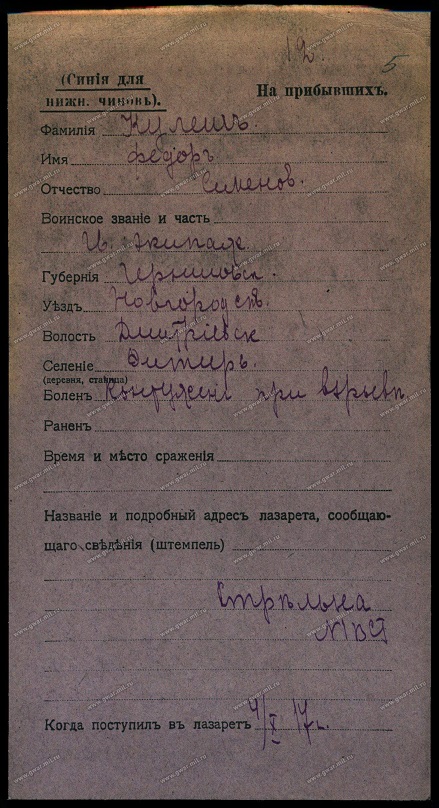 12.
5
(Синія для
нижн. чиновъ).
На прибывшихъ.
Фамилія Кулешъ.
Имя Федоръ
Отчество Семенов.
Воинское званіе и часть
Гв. Экипаже.
Губернія Черниговск.
Уѣздъ Новгородств.
Волость Дмитріевск
Селеніе
(деревня, станица)
Боленъ Контуженъ при взрывѣ
Раненъ
Время и мѣсто сраженія
Названіе и подробный адресъ лазарета, сообщаю-
щаго свѣдѣнія (штемпель)
Стрѣльна
Когда поступилъ въ лазаретъ 4/X 17г.
www.gwar.mil.ru